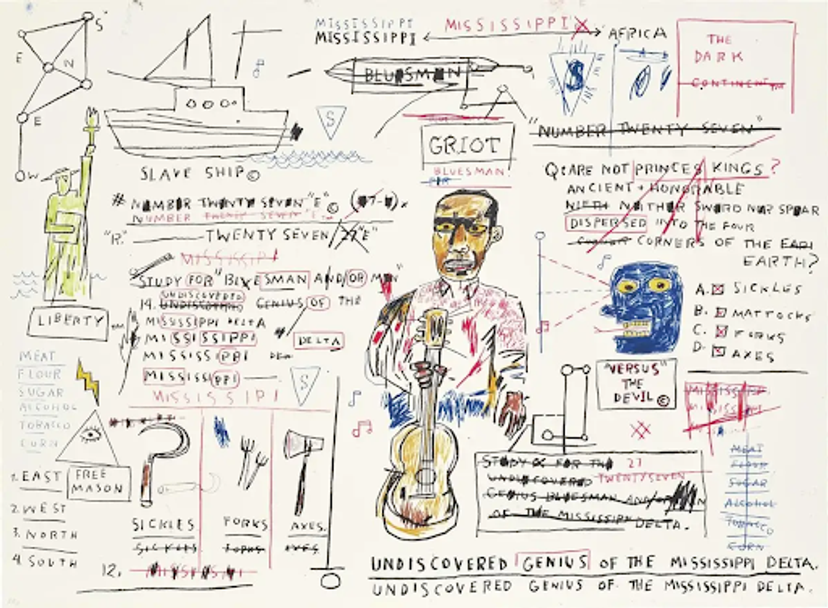 S
E
N
E
W
MISSISSIPPI
MISSISSIPPI
MISSISSIPPI
AFRICA
THE
DARK
CONTINENT™
BLUESMAN
S
S
GRIOT
BLUESMAN
"NUMBER TWENTY SEVEN"
SLAVE SHIP©
# NUMBER TWENTY SEVEN "E" ©
NUMBER TWENTY SEVEN "E"
"R." TWENTY SEVEN / 27 "E"
MISSISSIPPI
STUDY FOR "BLUESMAN AND/OR MAN"
UNDISCOVERED
14. UNDISCOVERED GENIUS OF THE
MISSISSIPPI DELTA
MISSISSIPPI DELTA
MISSISSIPPI DELTA
MISSISSIPPI
MISSISSIPPI
S
Q: ARE NOT PRINCES KINGS?
ANCIENT + HONORABLE
NIETH NEITHER SWORD NOR SPEAR
DISPERSED INTO THE FOUR
CORNERS OF THE EARTH
EARTH?
A. SICKLES
B. MATTOCKS
C. FORKS
D. AXES
LIBERTY
MEAT
FLOUR
SUGAR
ALCOHOL
TOBACCO
CORN
FREE
MASON
1. EAST
2. WEST
3. NORTH
4. SOUTH
SICKLES
SICKLES
FORKS
FORKS
AXES.
AXES
12. MISSISSIPPI
"VERSUS"
THE
DEVIL©
MISSISSIPPI
MISSISSIPPI
MEAT
FLOUR
SUGAR
ALCOHOL
TOBACCO
CORN
STUDY FOR THE 27
UNDISCOVERED TWENTYSEVEN
GENIUS BLUESMAN AND/OR MAN
OF THE MISSISSIPPI DELTA.
UNDISCOVERED GENIUS OF THE MISSISSIPPI DELTA.
UNDISCOVERED GENIUS OF THE MISSISSIPPI DELTA.